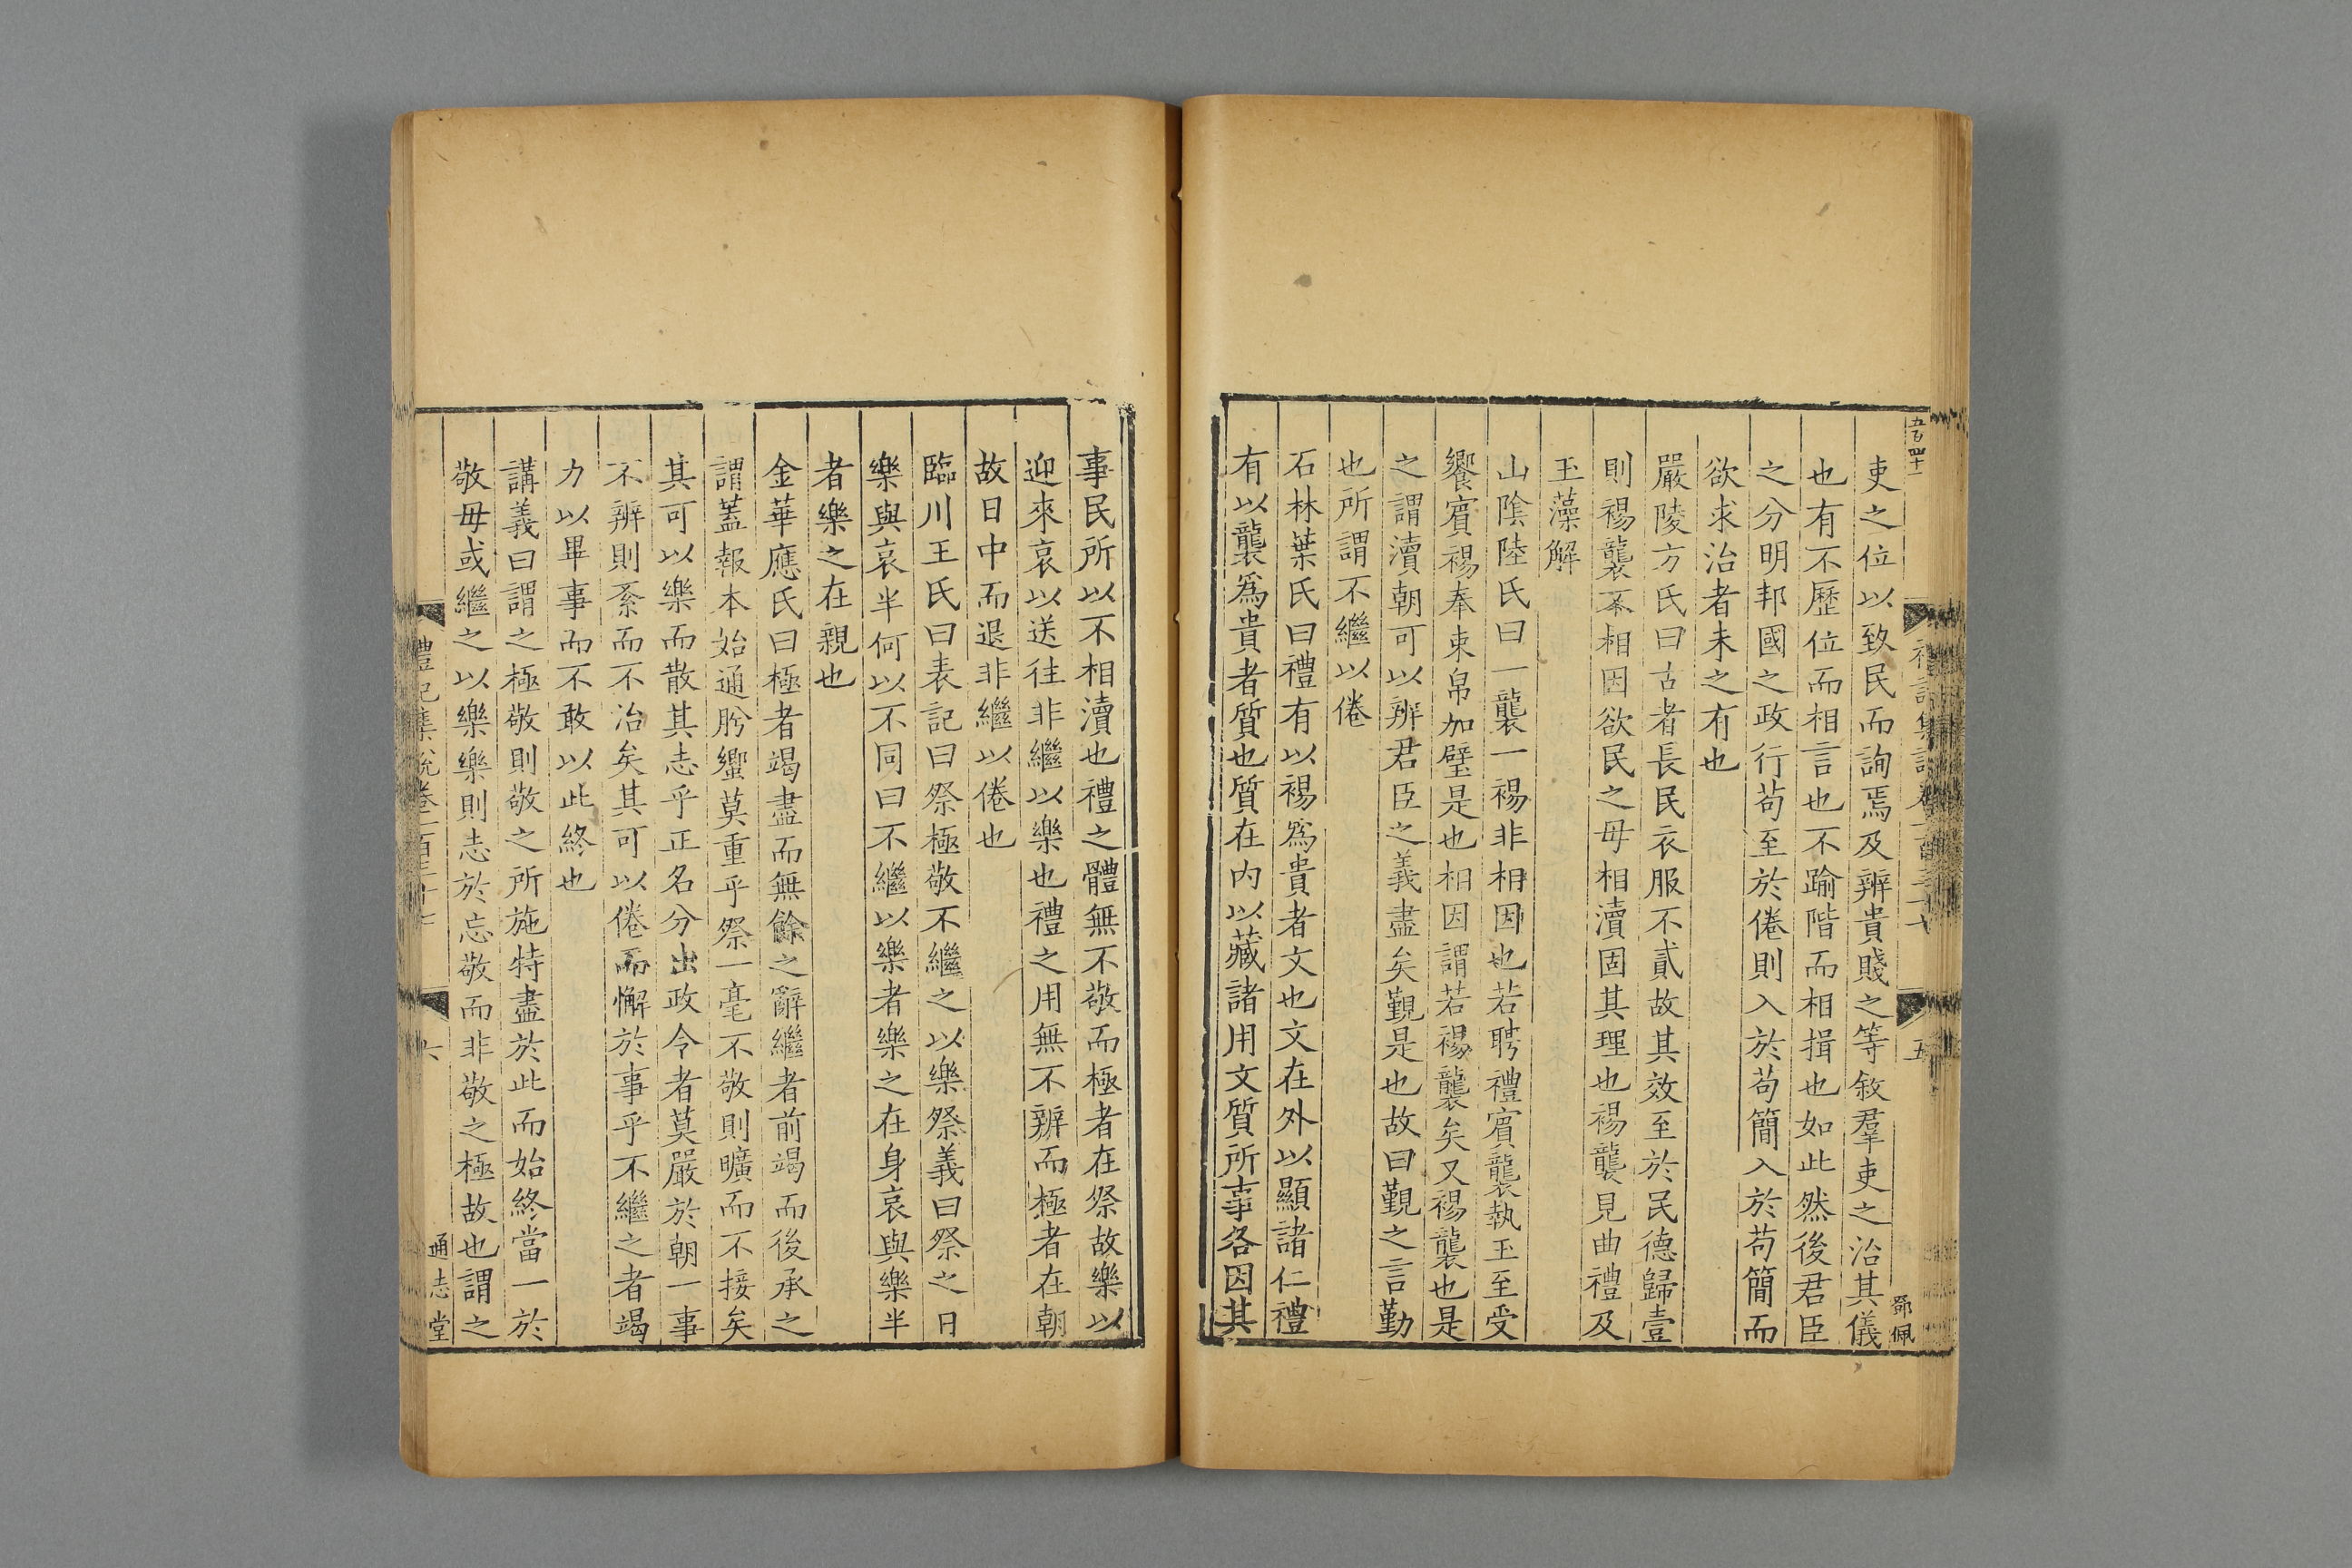 吏之位以致民而詢焉及辨貴賤之等敘羣吏之治其儀
也有不歷位而相言也不踰階而相揖也如此然後君臣
之分明邦國之政行苟至於倦則入於苟簡入於苟簡而
欲求治者未之有也
嚴陵方氏曰古者長民衣服不貳故其效至於民德歸壹
則裼襲不相因欲民之毋相瀆固其理也裼襲見曲禮及
玉藻解
山陰陸氏曰一襲一裼非相因也若聘禮賓襲執玉至受
饗賓裼奉束帛加璧是也相因謂若裼襲矣又裼襲也是
之謂瀆朝可以辨君臣之義盡矣覲是也故曰覲之言勤
也所謂不繼以倦
石林葉氏曰禮有以裼爲貴者文也文在外以顯諸仁禮
有以襲爲貴者質也質在内以藏諸用文質所事各因其
五百四十
五
鄧佩
事民所以不相瀆也禮之體無不敬而極者在祭故樂以
迎來哀以送往非繼以樂也禮之用無不辨而極者在朝
故日中而退非繼以倦也
臨川王氏曰表記曰祭極敬不繼之以樂祭義曰祭之日
樂與哀半何以不同曰不繼以樂者樂之在身哀與樂半
者樂之在親也
金華應氏曰極者竭盡而無餘之辭繼者前竭而後承之
謂蓋報本始通肹蠁莫重乎祭一毫不敬則曠而不接矣
其可以樂而散其志乎正名分出政令者莫嚴於朝一事
不辨則紊而不治矣其可以倦而懈於事乎不繼之者竭
力以畢事而不敢以此終也
講義曰謂之極敬則敬之所施特盡於此而始終當一於
敬毋或繼之以樂樂則志於忘敬而非敬之極故也謂之
禮記集說卷一百三十七
六
通志堂